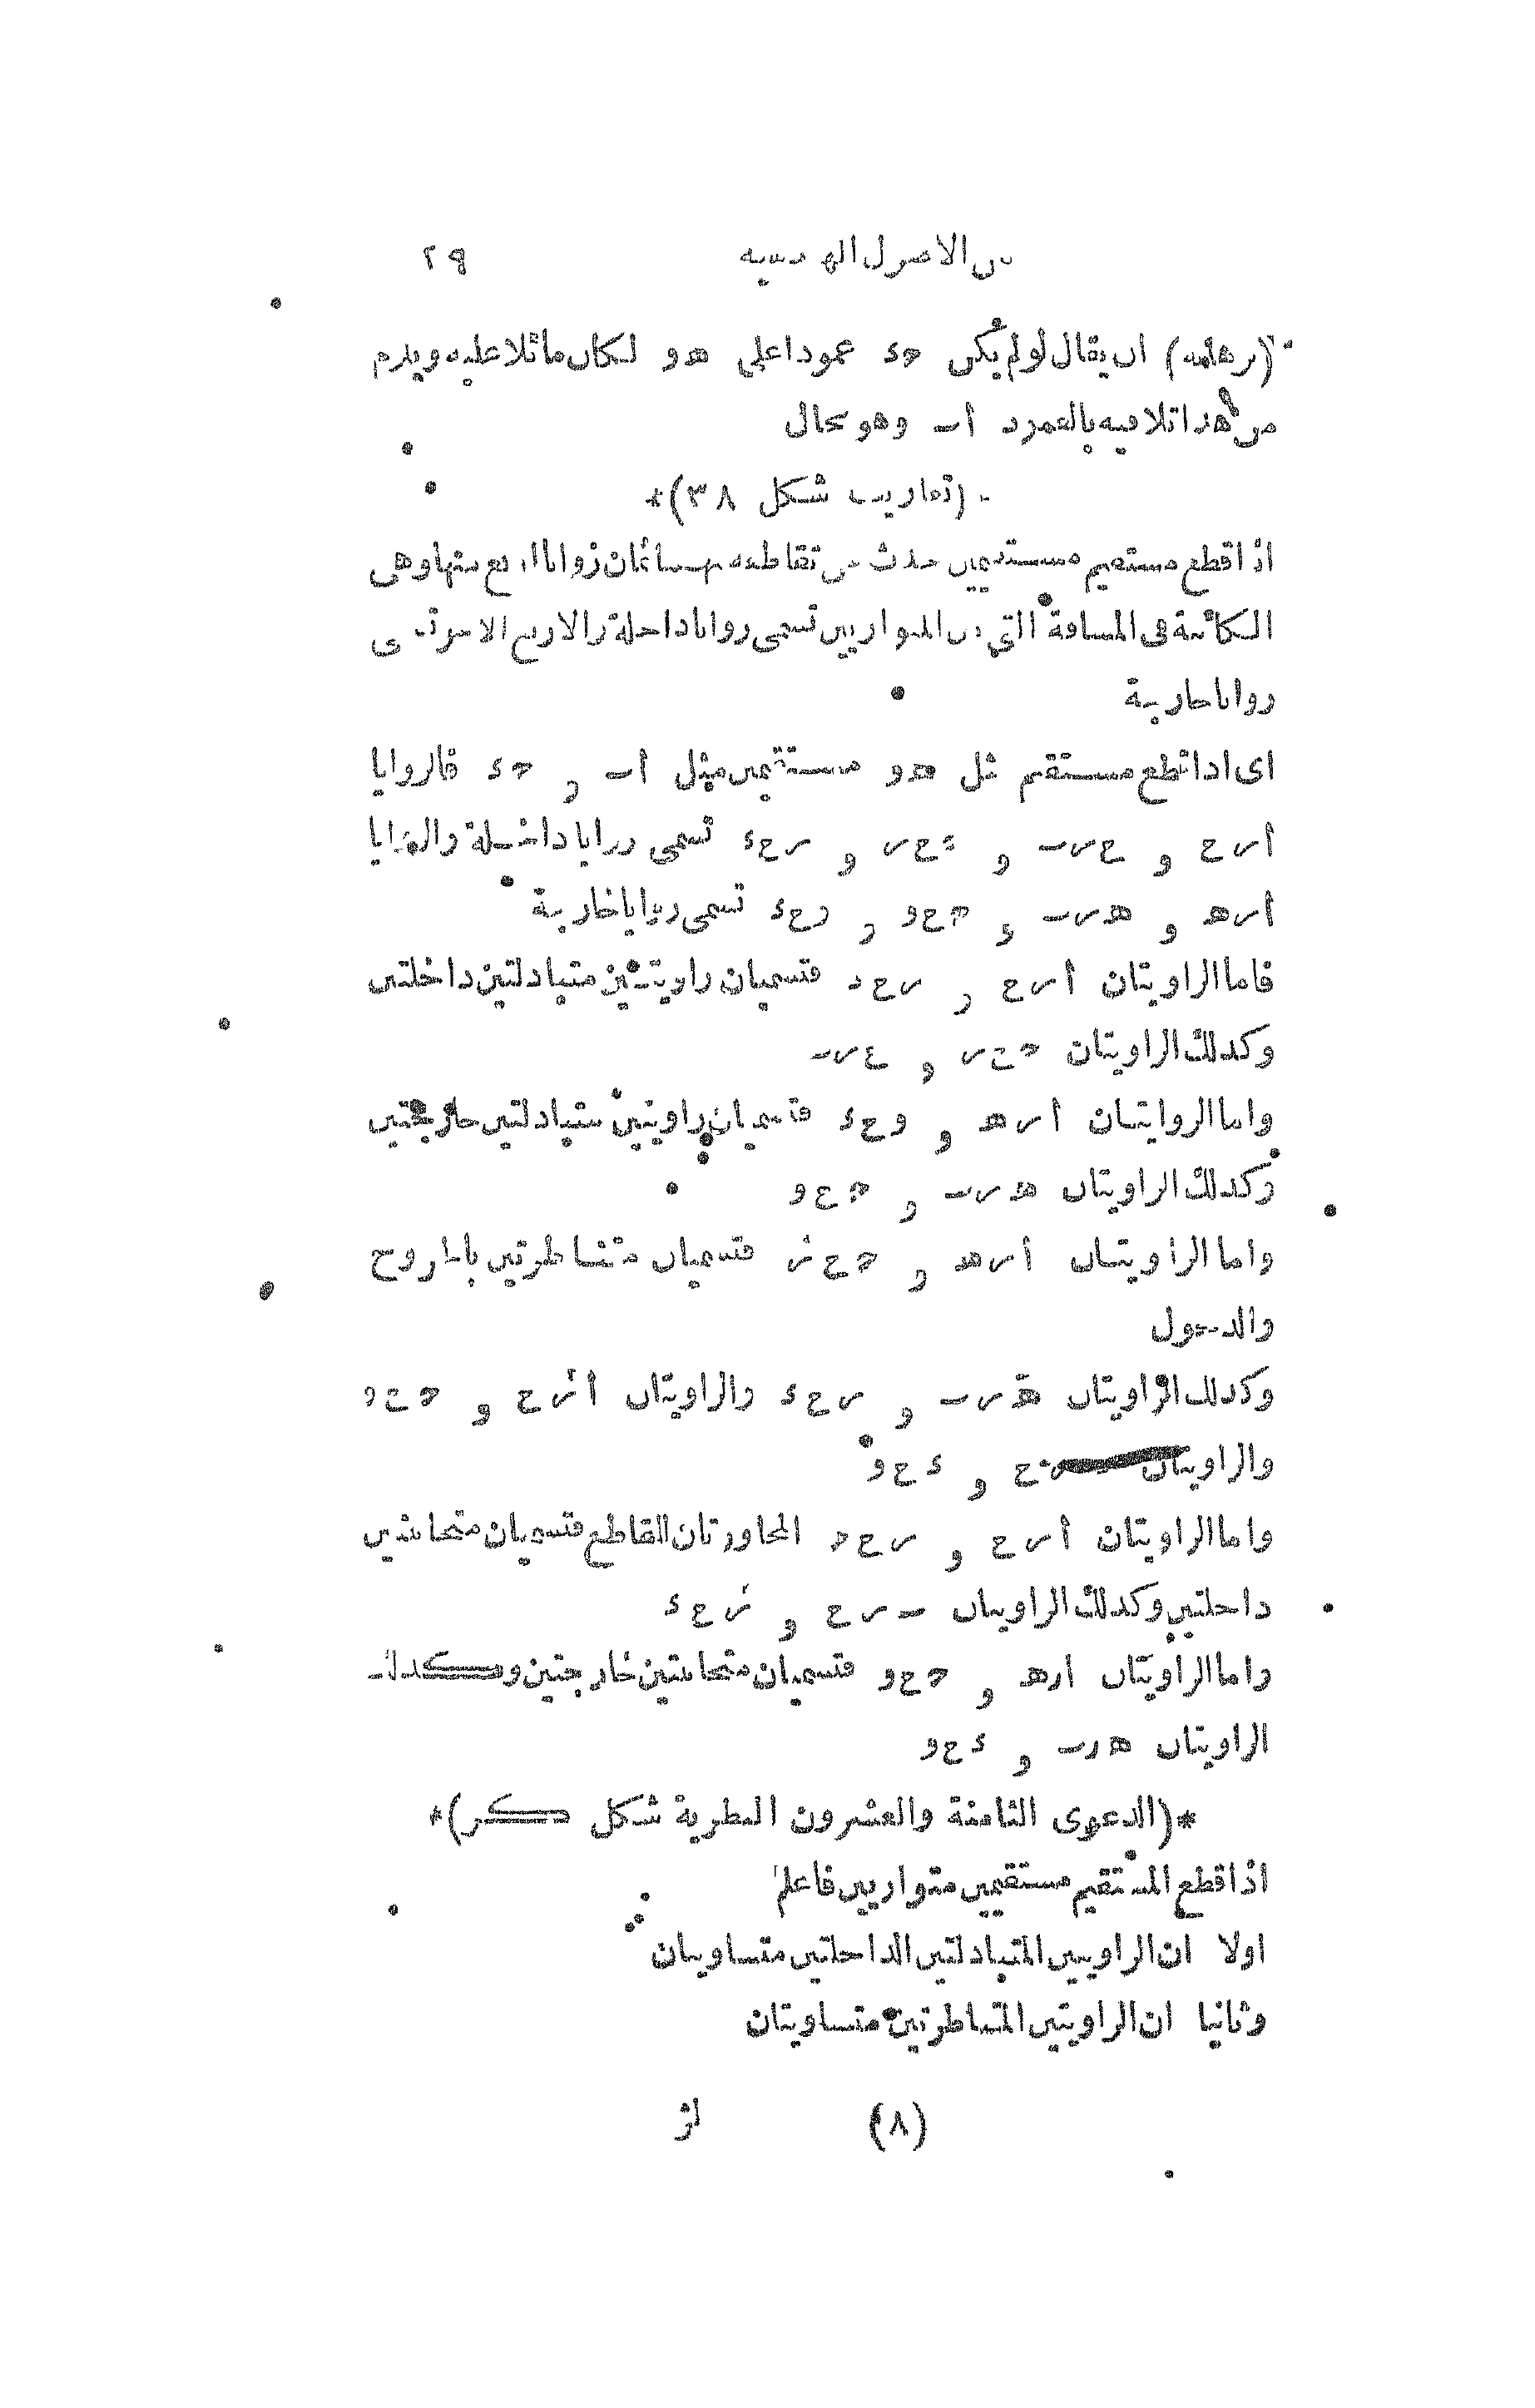 من الاصول الهندسيه ٢٩
(برهانه) ان يقال لو لم يكن حء عمودا على هو لكان مائلا عليه ويلزم
من هذا تلاقيه بالعمود أب وهو محال
(تعاريف شكل ٣٨)*
اذا قطع مستقيم مستقيمين حدث من تقاطعه بهما ثمان زوايا اربع منها وهى
الكائنة فى المسافة التى بين المتوازيين تسمى زوايا داخلة والاربع الاخر تسمى
زوايا خارجة
اى اذا قطع مستقيم مثل هو مستقيمين مثل أب و حء فالزوايا
أرح و حرب و حح ر و رحء تسمى زوايا داخلة والزوايا
أره و هرب و ححو و وحء تسمى زوايا خارجة
فاما الزاويتان أرح و رحء فتسميان زاويتين متبادلتين داخلتين
وكذلك الزاويتان ححر و حرب
واما الزوايتان أره و وحء فتسميان زاويتين متبادلتين خارجتين
وكذلك الزاويتان هرب و ححو
واما الزاويتان أره و ححر فتسميان متناظرتين بالخروج
والدخول
وكذلك الزاويتان هرب و رحء والزاويتان أرح و ححو
والزاويتان رح و ءحو
واما الزاويتان أرح و رحح المجاورتان للقاطع فتسميان متحانتين
داخلتين وكذلك الزاويتان برح و رحء
واما الزاويتان اره و ححو فتسميان متحانتين خارجتين وكذلك
الزاويتان هرب و ءحو
*(الدعوى الثامنة والعشرون النظرية شكل كر)*
اذا قطع المستقيم مستقيمين متوازيين فاعلم
اولا ان الزاويتين المتبادلتين الداخلتين متساويتان
وثانيا ان الزاويتين المتناظرتين متساويتان
(٨)